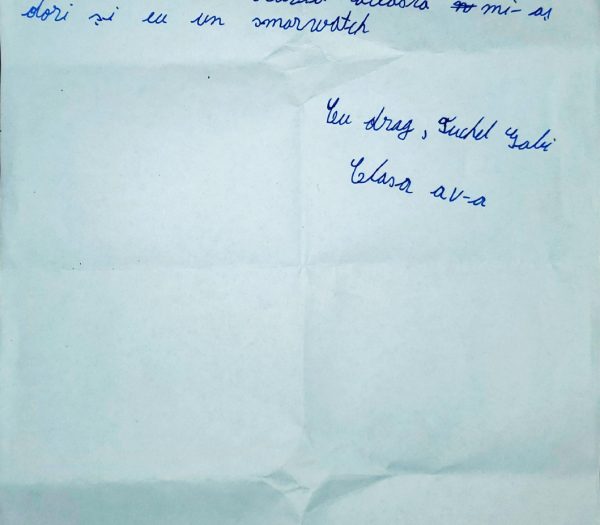 mi-aș
dori și eu un smarwatch
Cu drag, Suchel Gabi
Clasa aV-a